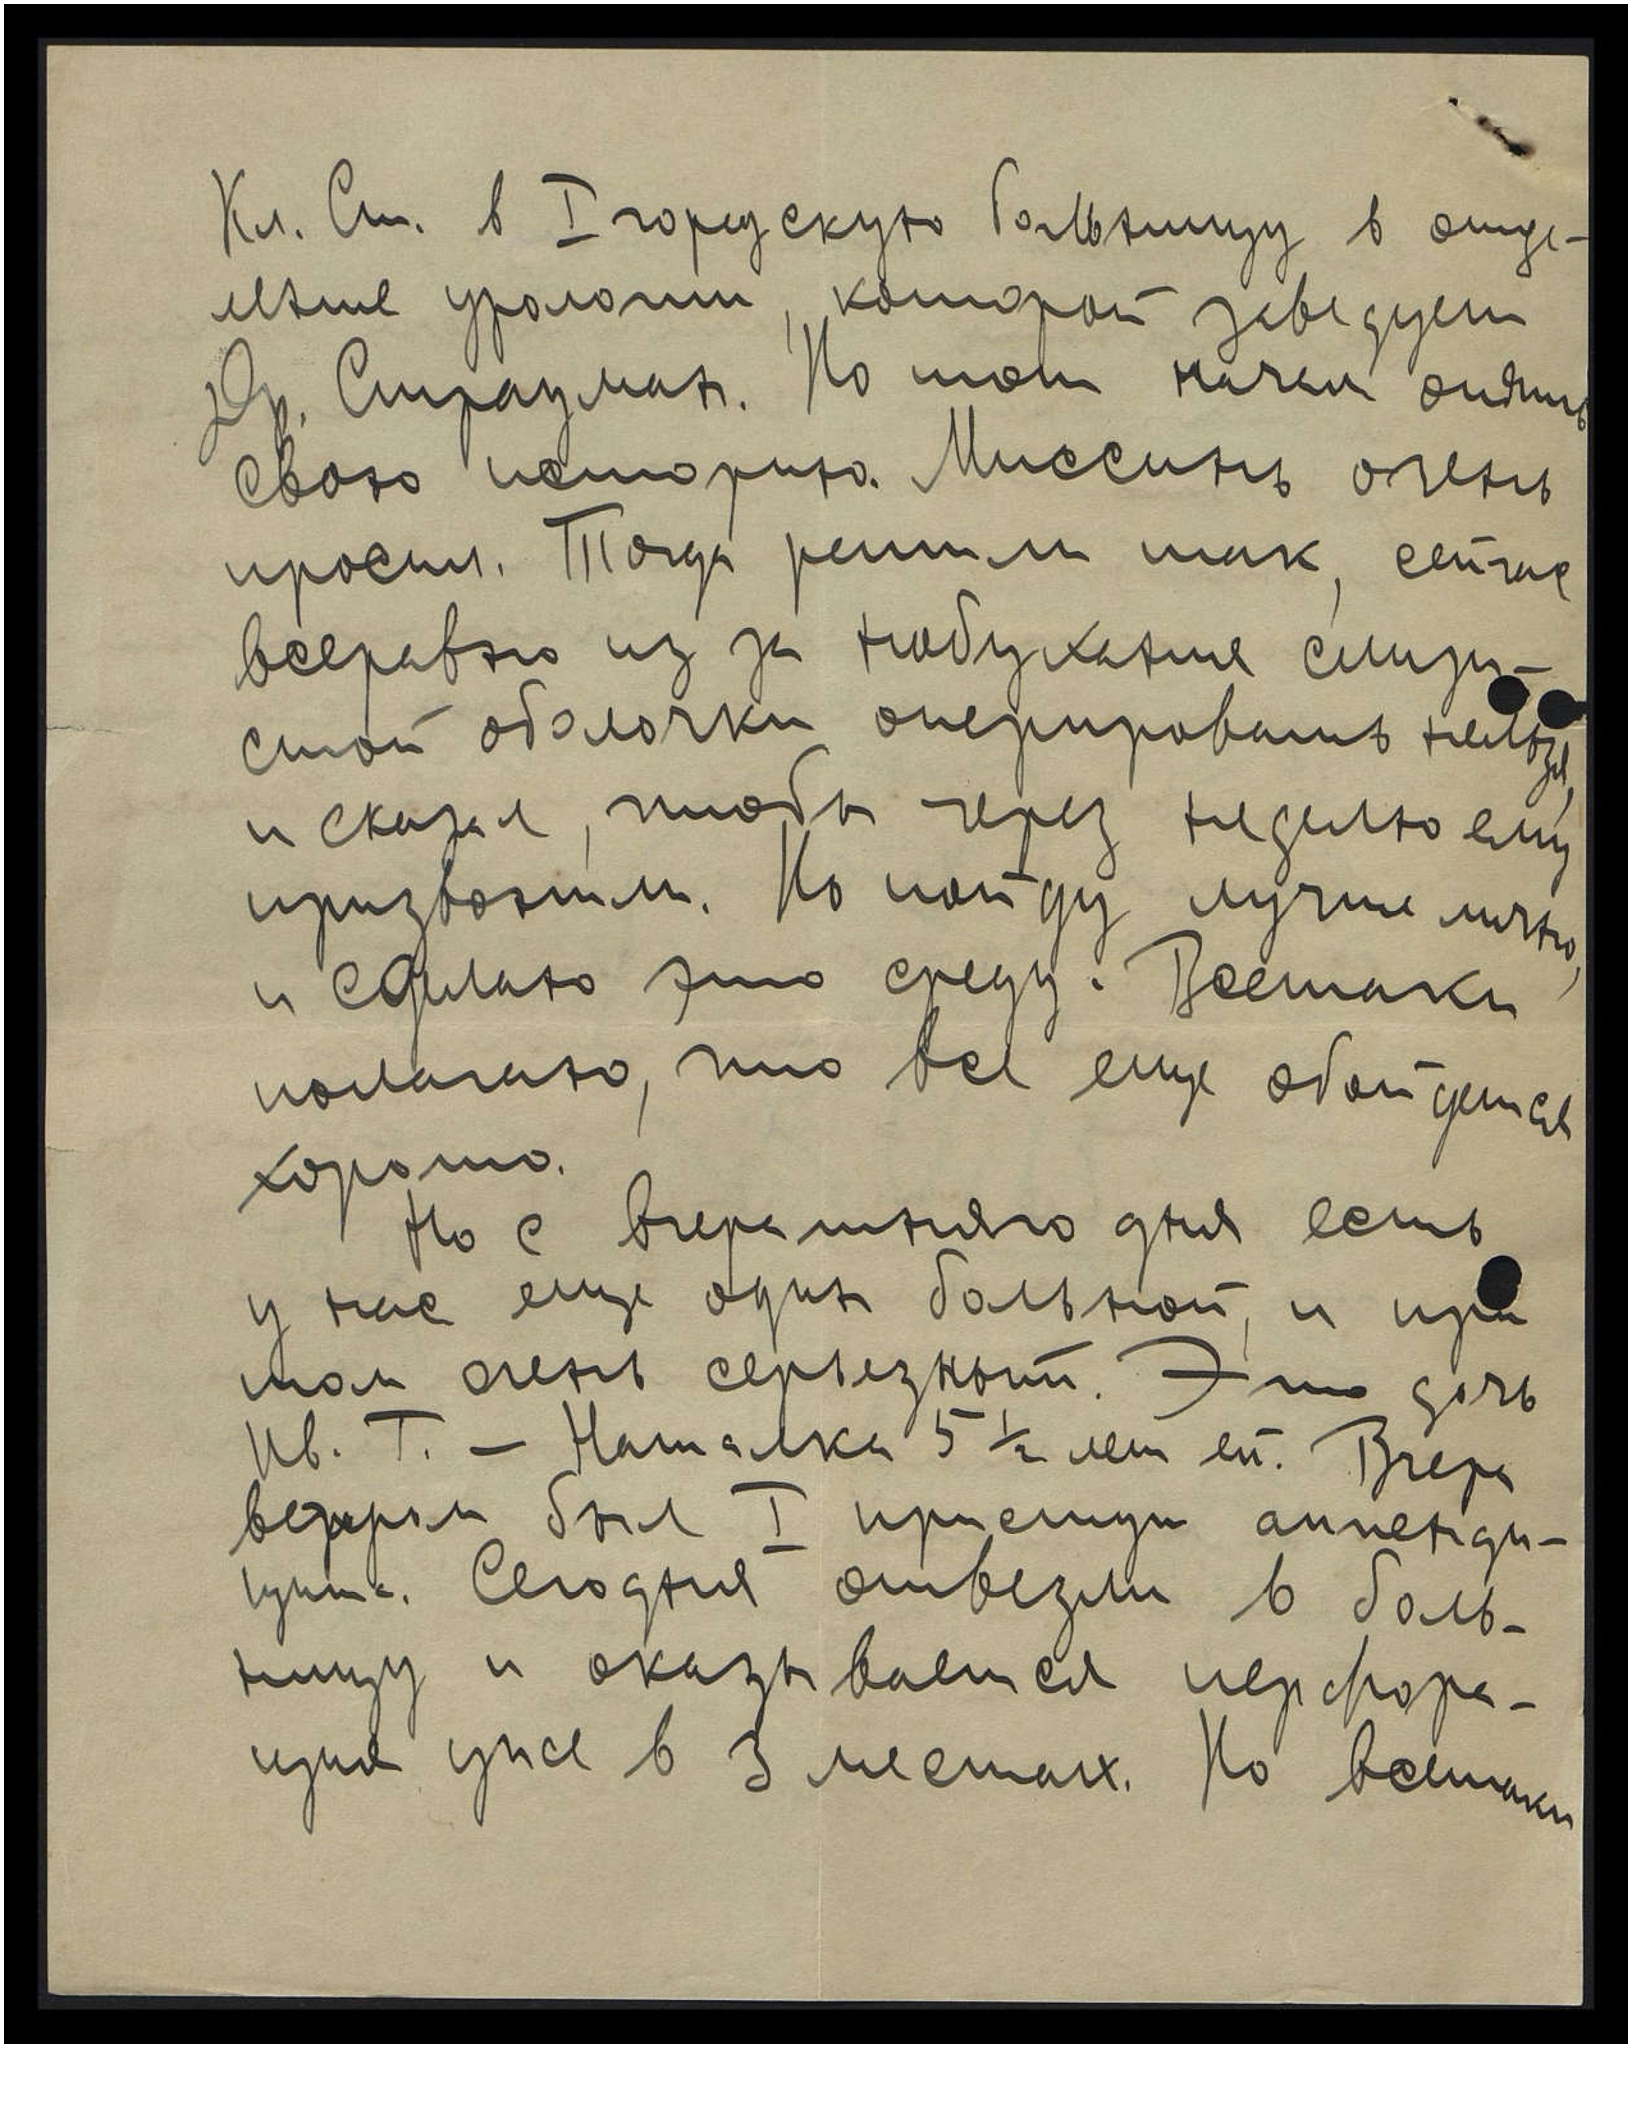 Кл. Ст. в I городскую больницу в отде-
ление урологии, которой заведует
Др. Страуман. Но тот начал опять
свою историю. Миссинь очень
просил. Тогда решили так, сейчас
всеравно из за набухания слизи-
стой оболочки оперировать нельзя,
и сказал, чтобы через неделю ему
призвонили. Но пойду лучше лично,
и сделаю это среду. Всетаки
полагаю, что все еще обойдется
хорошо.
Но с вчерашняго дня есть
у нас еще один больной, и при
том очень серьезный. Это дочь
Ив. Т. — Наталка 5 ½ лет ей. Вчера
вечером был I приступ аппенди-
цита. Сегодня отвезли в боль-
ницу и оказывается перфора-
ция уже в 3 местах. Но всетаки